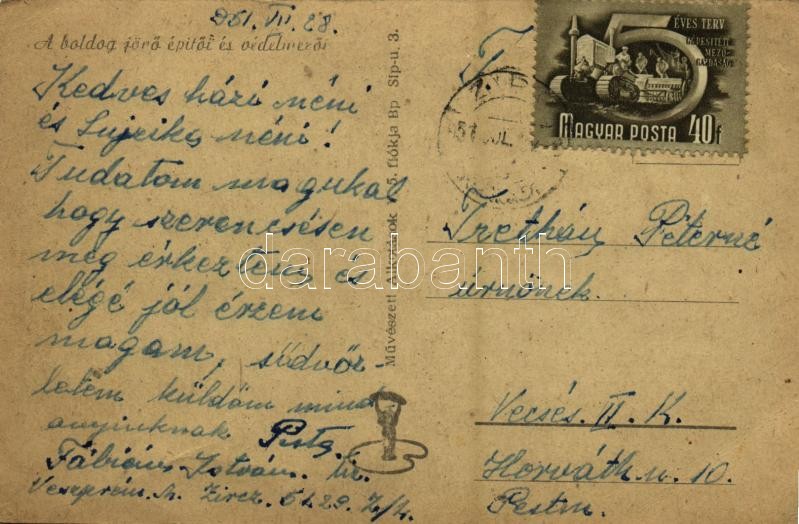 951. III. 28.
A boldog jövő építői és védelmezői
Kedves házi néni
és Sujcika néni!
Tudatom magukat
hogy szerencsésen
meg érkeztem és
elégé jól érzem
magam, südvőz-
letem küldöm mind
anyiuknak Pista
Fábián István.
Veszprém. m. Zircz. 5129. Z/4.
Művészeti Alkotások 5. fiókja Bp Sip-u. 3.
ÉVES TERV
GÉPESÍTETT
MEZŐ-
GAZDASÁG
5
MAGYAR POSTA 40f
51 JUL.
Trethán Péterné
úrnőnek.
Vecsés. II. K.
Horváth u. 10.
Pestm.
darabanth